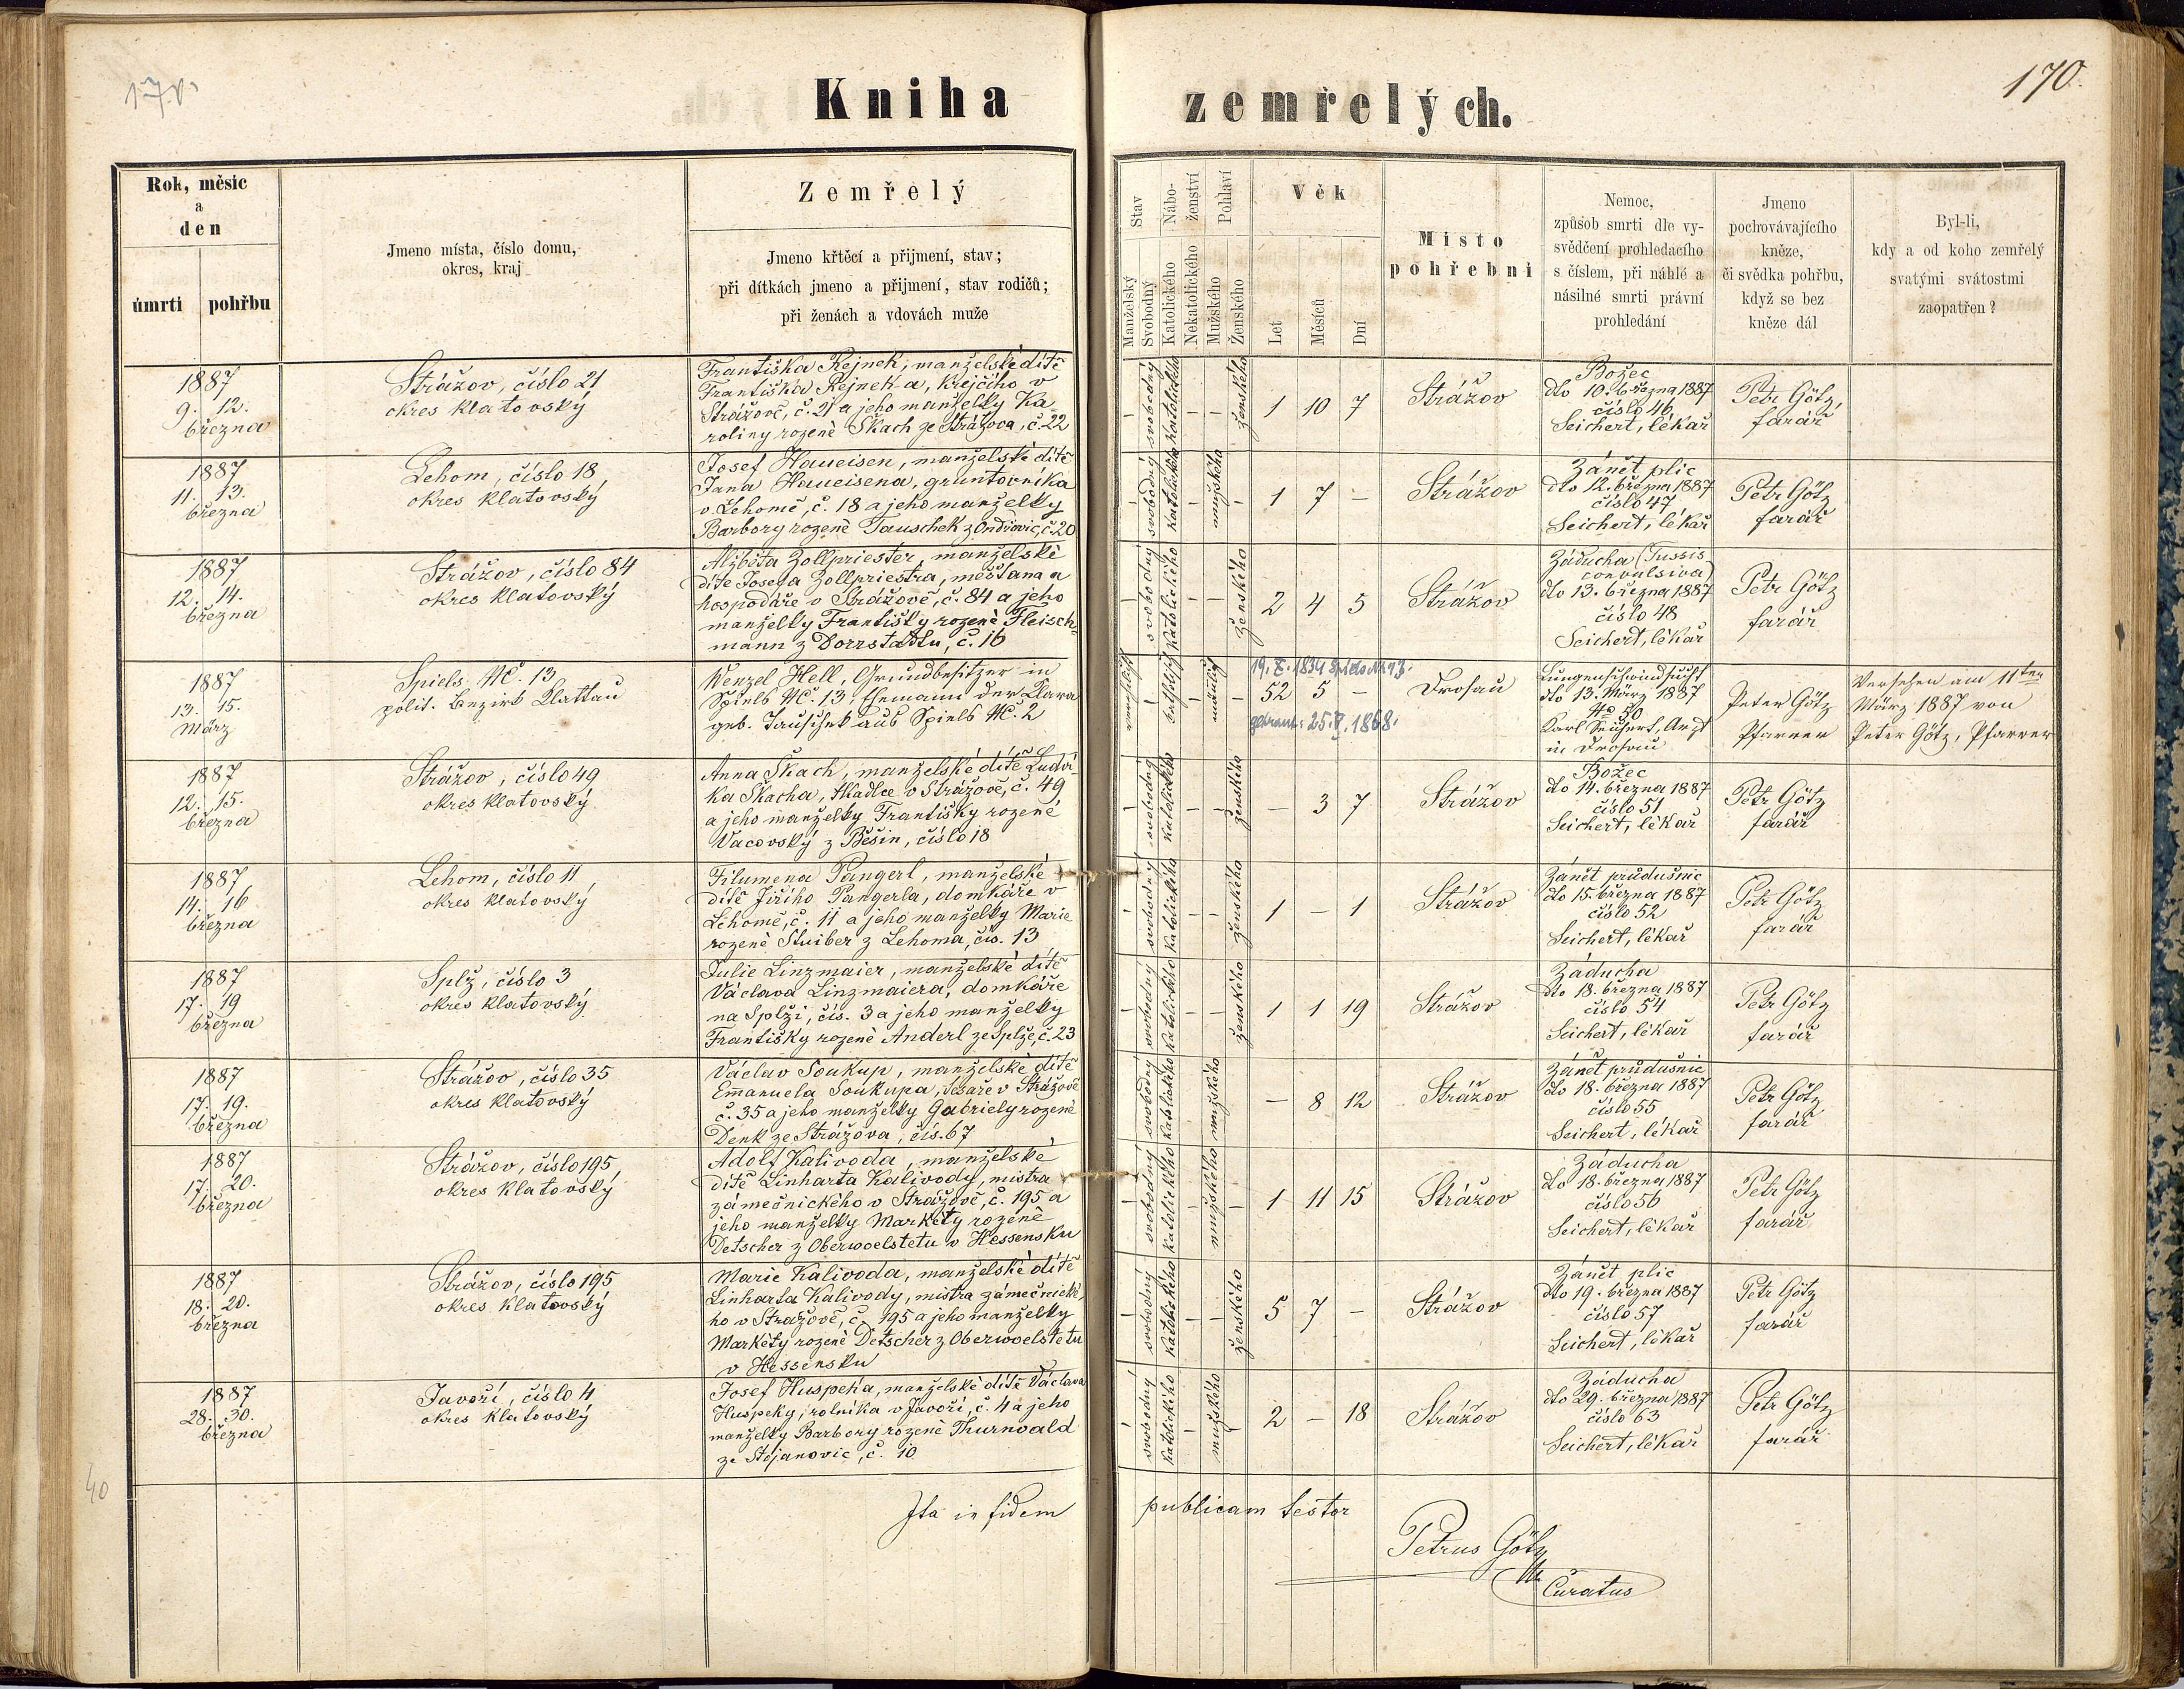 170
Kniha zemřelých.
170.
Rok, měsíc
a
den
úmrtí
pohřbu
Jmeno místa, číslo domu,
okres, kraj
Zemřelý
Jmeno křtěcí a přijmení, stav;
při dítkách jmeno a přijmení, stav rodičů;
při ženách a vdovách muže
Stav
Manželský
Svobodný
Nábo-
ženství
Katolického
Nekatolického
Pohlaví
Mužského
Ženského
Věk
Let
Měsíců
Dní
Místo
pohřební
Nemoc,
způsob smrti dle vy-
svědčení prohledacího
s číslem, při náhlé a
násilné smrti právní
prohledání
Jmeno
pochovávajícího
kněze,
či svědka pohřbu,
když se bez
kněze dál
Byl-li,
kdy a od koho zemřelý
svatými svátostmi
zaopatřen?
1887
9. 12.
března
Strážov, číslo 21
okres klatovský
Františka Rejnek, manželské dítě
Františka Rejnek-a, krejčího v
Strážově, č. 21 a jeho manželky Ka
roliny rozené Skach ze Strážova, č. 22
— svobodný katolického — — ženského
1 10 7
Strážov
Božec
dto 10. března 1887
číslo 46,
Seichert, lékař
Petr Götz,
farář
1887
11. 13.
března
Lehom, číslo 18,
okres klatovský
Josef Haueisen, manželské dítě
Jana Haueisena, gruntovníka
v Lehomě, č. 18 a jeho manželky
Barbory rozené Tauschek z Ondřovic, č. 20
— svobodný katolického — mužského —
1 7 —
Strážov
Zánět plic
dto 12. března 1887
číslo 47
Seichert, lékař
Petr Götz
farář
1887
12. 14.
března
Strážov, číslo 84
okres klatovský
Alžběta Zollpriester, manželské
dítě Josefa Zollpriestra, měšťana a
hospodáře v Strážově, č. 84 a jeho
manželky Františky rozené Fleisch-
mann z Dorrstadtu, č. 16
— svobodný katolického — — ženského
2 4 5
Strážov
Záducha (Tussis
convulsiva)
dto 13. března 1887
číslo 48
Seichert, lékař
Petr Götz
farář
1887
13. 15.
März
Spiels NC. 13
polit. Bezirk Klattau
Wenzel Hell, Grundbesitzer in
Spiels NC. 13, Ehemann der Klara
geb. Tauschek aus Spiels NC. 2
19. X. 1834 Spiels Nr. 13.
52 5 —
getraut: 25. V. 1868.
Drosau
Lungenschwindsucht
dto 13. März 1887
No 50
Karl Seichert, Arzt
in Drosau
Peter Götz
Pfarrer
Versehen am 11ten
März 1887 von
Peter Götz, Pfarrer
1887
12. 15.
března
Strážov, číslo 49
okres klatovský
Anna Skach, manželské dítě Ludví
ka Skacha, tkadlce v Strážově, č. 49
a jeho manželky Františky rozené
Vacovský z Běšin, číslo 18
— svobodný katolického — — ženského
— 3 7
Strážov
Božec
dto 14. března 1887
číslo 51
Seichert, lékař
Petr Götz
farář
1887
14. 16
března
Lehom, číslo 11
okres klatovský
Filumena Pangerl, manželské
dítě Jiřího Pangerla, domkáře v
Lehomě, č. 11 a jeho manželky Marie
rozené Stuiber z Lehoma, čís. 13
— svobodný katolického — — ženského
1 — 1
Strážov
Zánět průdušnic
dto 15. března 1887
číslo 52
Seichert, lékař
Petr Götz
farář
1887
17. 19
března
Splž, číslo 3
okres klatovský
Julie Linzmaier, manželské dítě
Václava Linzmaiera, domkáře
na Splži, čís. 3 a jeho manželky
Františky rozené Anderl ze Splže, č. 23
— svobodný katolického — — ženského
1 1 19
Strážov
Záducha
dto 18. března 1887
číslo 54
Seichert, lékař
Petr Götz
farář
1887
17. 19.
března
Strážov, číslo 35
okres klatovský
Václav Soukup, manželské dítě
Emanuela Soukupa, tesaře v Strážově
č. 35 a jeho manželky Gabriely rozené
Denk ze Strážova, čís. 67
— svobodný katolického — mužského
— 8 12
Strážov
Zánět průdušnic
dto 18. března 1887
číslo 55
Seichert, lékař
Petr Götz
farář
1887
17. 20.
března
Strážov, číslo 195,
okres klatovský
Adolf Kalivoda, manželské
dítě Linharta Kalivody, mistra
zámečnického v Strážově, č. 195 a
jeho manželky Markéty rozené
Detscher z Oberwoelstetu v Hessensku
— svobodný katolického — mužského —
1 11 15
Strážov
Záducha
dto 18. března 1887
číslo 56
Seichert, lékař
Petr Götz
farář
1887
18. 20.
března
Strážov, číslo 195
okres klatovský
Marie Kalivoda, manželské dítě
Linharta Kalivody, mistra zámečnické-
ho v Strážově, č. 195 a jeho manželky
Markéty rozené Detscher z Oberwoelstetu
v Hessensku
— svobodný katolického — — ženského
5 7 —
Strážov
Zánět plic
dto 19. března 1887
číslo 57
Seichert, lékař
Petr Götz
farář
1887
28. 30.
března
Javoří, číslo 4
okres klatovský
Josef Huspeka, manželské dítě Václava
Huspeky, rolníka v Javoří, č. 4 a jeho
manželky Barbory rozené Thurnwald
ze Stojanovic, č. 10
— svobodný katolického — mužského —
2 — 18
Strážov
Záducha
dto 29. března 1887
číslo 63
Seichert, lékař
Petr Götz
farář
40
Ita in fidem publicam testor
Petrus Götz
Curatus